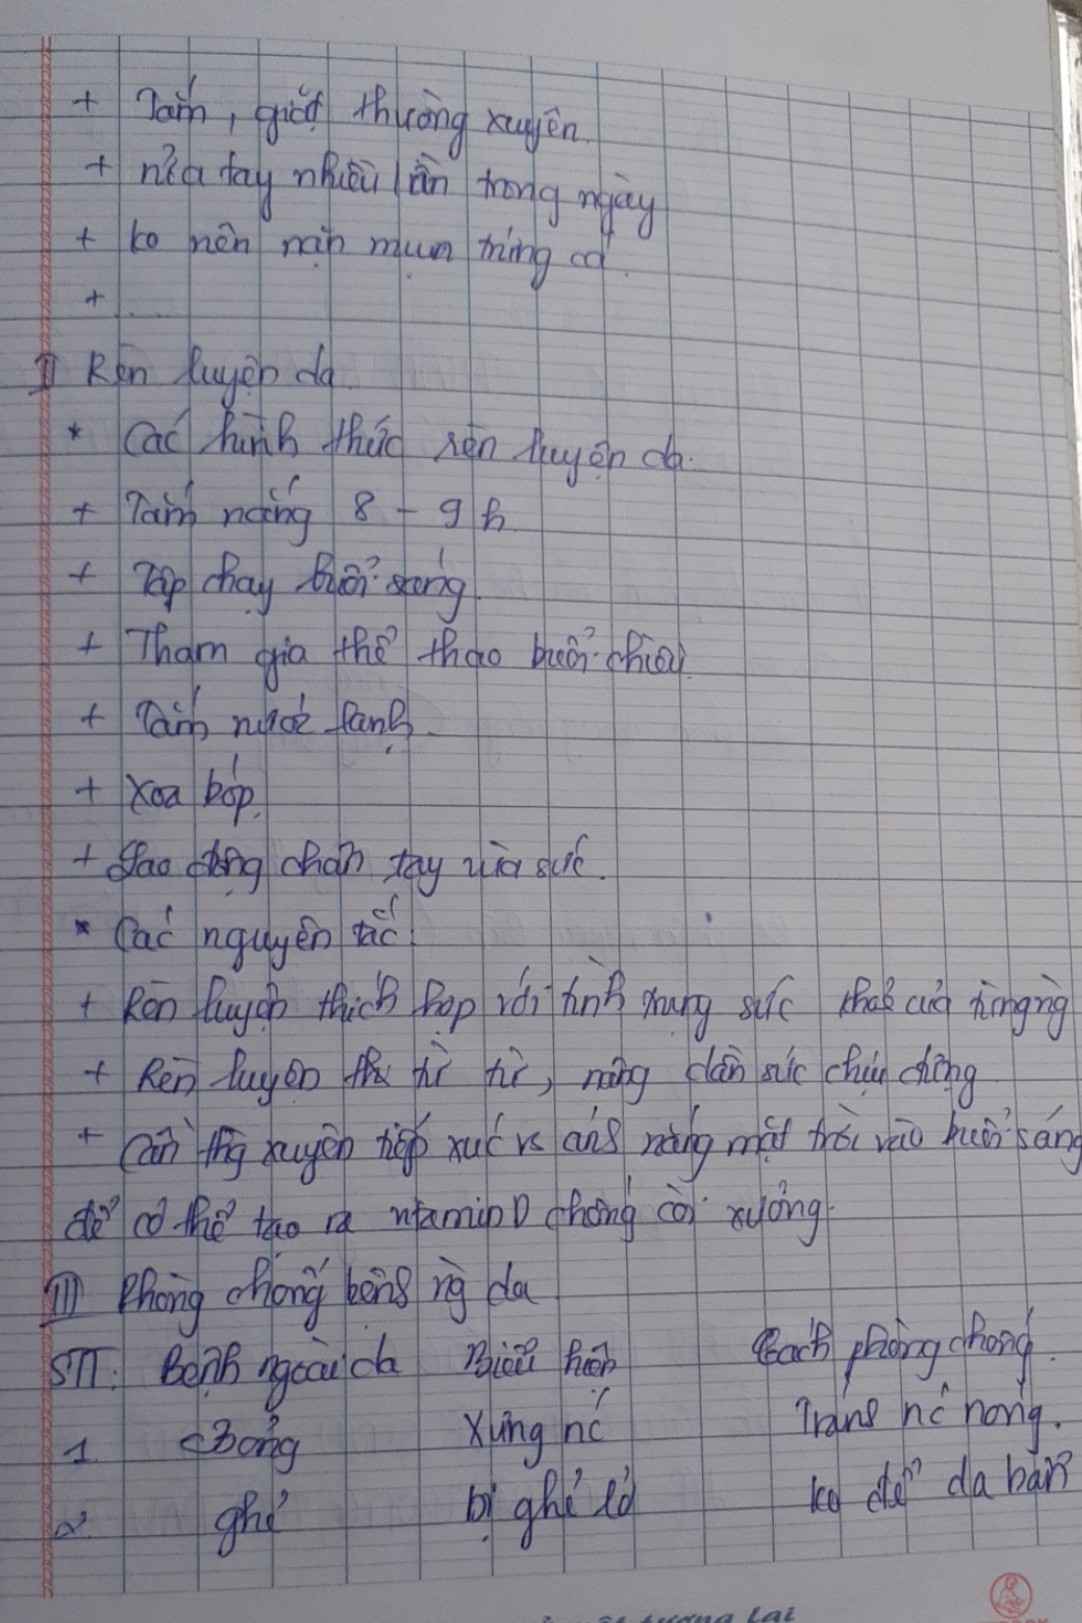 + Tắm, giặt thường xuyên.
+ rửa tay nhiều lần trong ngày
+ ko nên nặn mụn trứng cá.
+ ...
II Rèn luyện da
* Các hình thức rèn luyện da.
+ Tắm nắng 8 - 9h
+ Tập chạy buổi sáng.
+ Tham gia thể thao buổi chiều.
+ Tắm nước lạnh.
+ Xoa bóp.
+ Lao động chân tay vừa sức.
* Các nguyên tắc:
+ Rèn luyện thích hợp với tình trạng sức khoẻ của từng ng
+ Rèn luyện từ từ, nâng dần sức chịu đựng
+ Cần thg xuyên tiếp xúc vs ánh nắng mặt trời vào buổi sáng
để có thể tạo ra vitamin D chống còi xương.
III Phòng chống bệnh ng da
STT. Bệnh ngoài da Biểu hiện Cách phòng chống.
1 Bỏng Xưng nc Tránh nc nóng.
2 ghẻ bị ghẻ lở ko để da bẩn
tương Lai